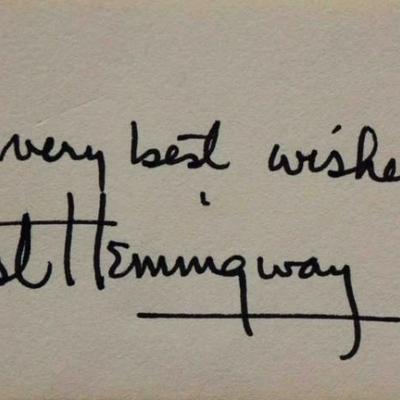 very best wishe
st Hemingway